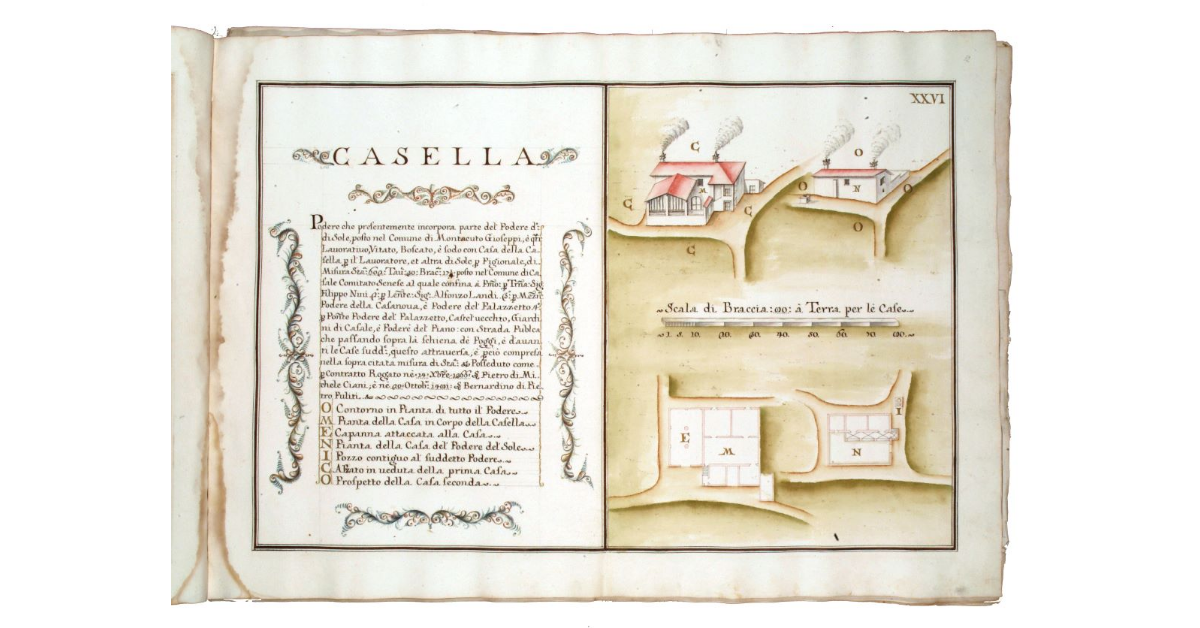 CASELLA
Podere che presentemente incorpora parte del Podere d:
di Sole, posto nel Comune di Montacuto Gioseppi, è
Lavoratiuo, Vitato, Boscato, è sodo con Casa della Ca-
sella p il Lauoratore, et altra di Sole p Pigionale, di
Misura Sta: Tau: Brac: posto nel Comune di Ca-
sale Comitato Senese al quale confina à Sig:
Filippo Nini Sig: Alfonzo Landi
Podere della Casanova, è Podere del Palazzetto
p Podere del Palazzetto, Castel'uecchio, Giardi-
ni di Casale, è Podere del Piano: con Strada Publca
che passando sopra là schiena dè Poggi, è dauan-
ti le Case sudd: questo attrauersa, è però compresa
nella sopra citata misura di Sta: Posseduto come
p Contratto Rogato nè Pietro di Mi-
chele Ciani, è nè Ottob: Bernardino di Pie-
tro Puliti
O Contorno in Pianta di tutto il Podere
M Pianta della Casa in Corpo della Casella
E Capanna attaccata alla Casa
N Pianta della Casa del Podere del Sole
I Pozzo contiguo al suddetto Podere
C Alzato in ueduta della prima Casa
O Prospetto della Casa seconda
XXVI
C
O
M
O
N
O
C
C
C
O
Scala di Braccia: à Terra per lè Case
10. 30. 40. 50. 60. 70
I
E
M
N